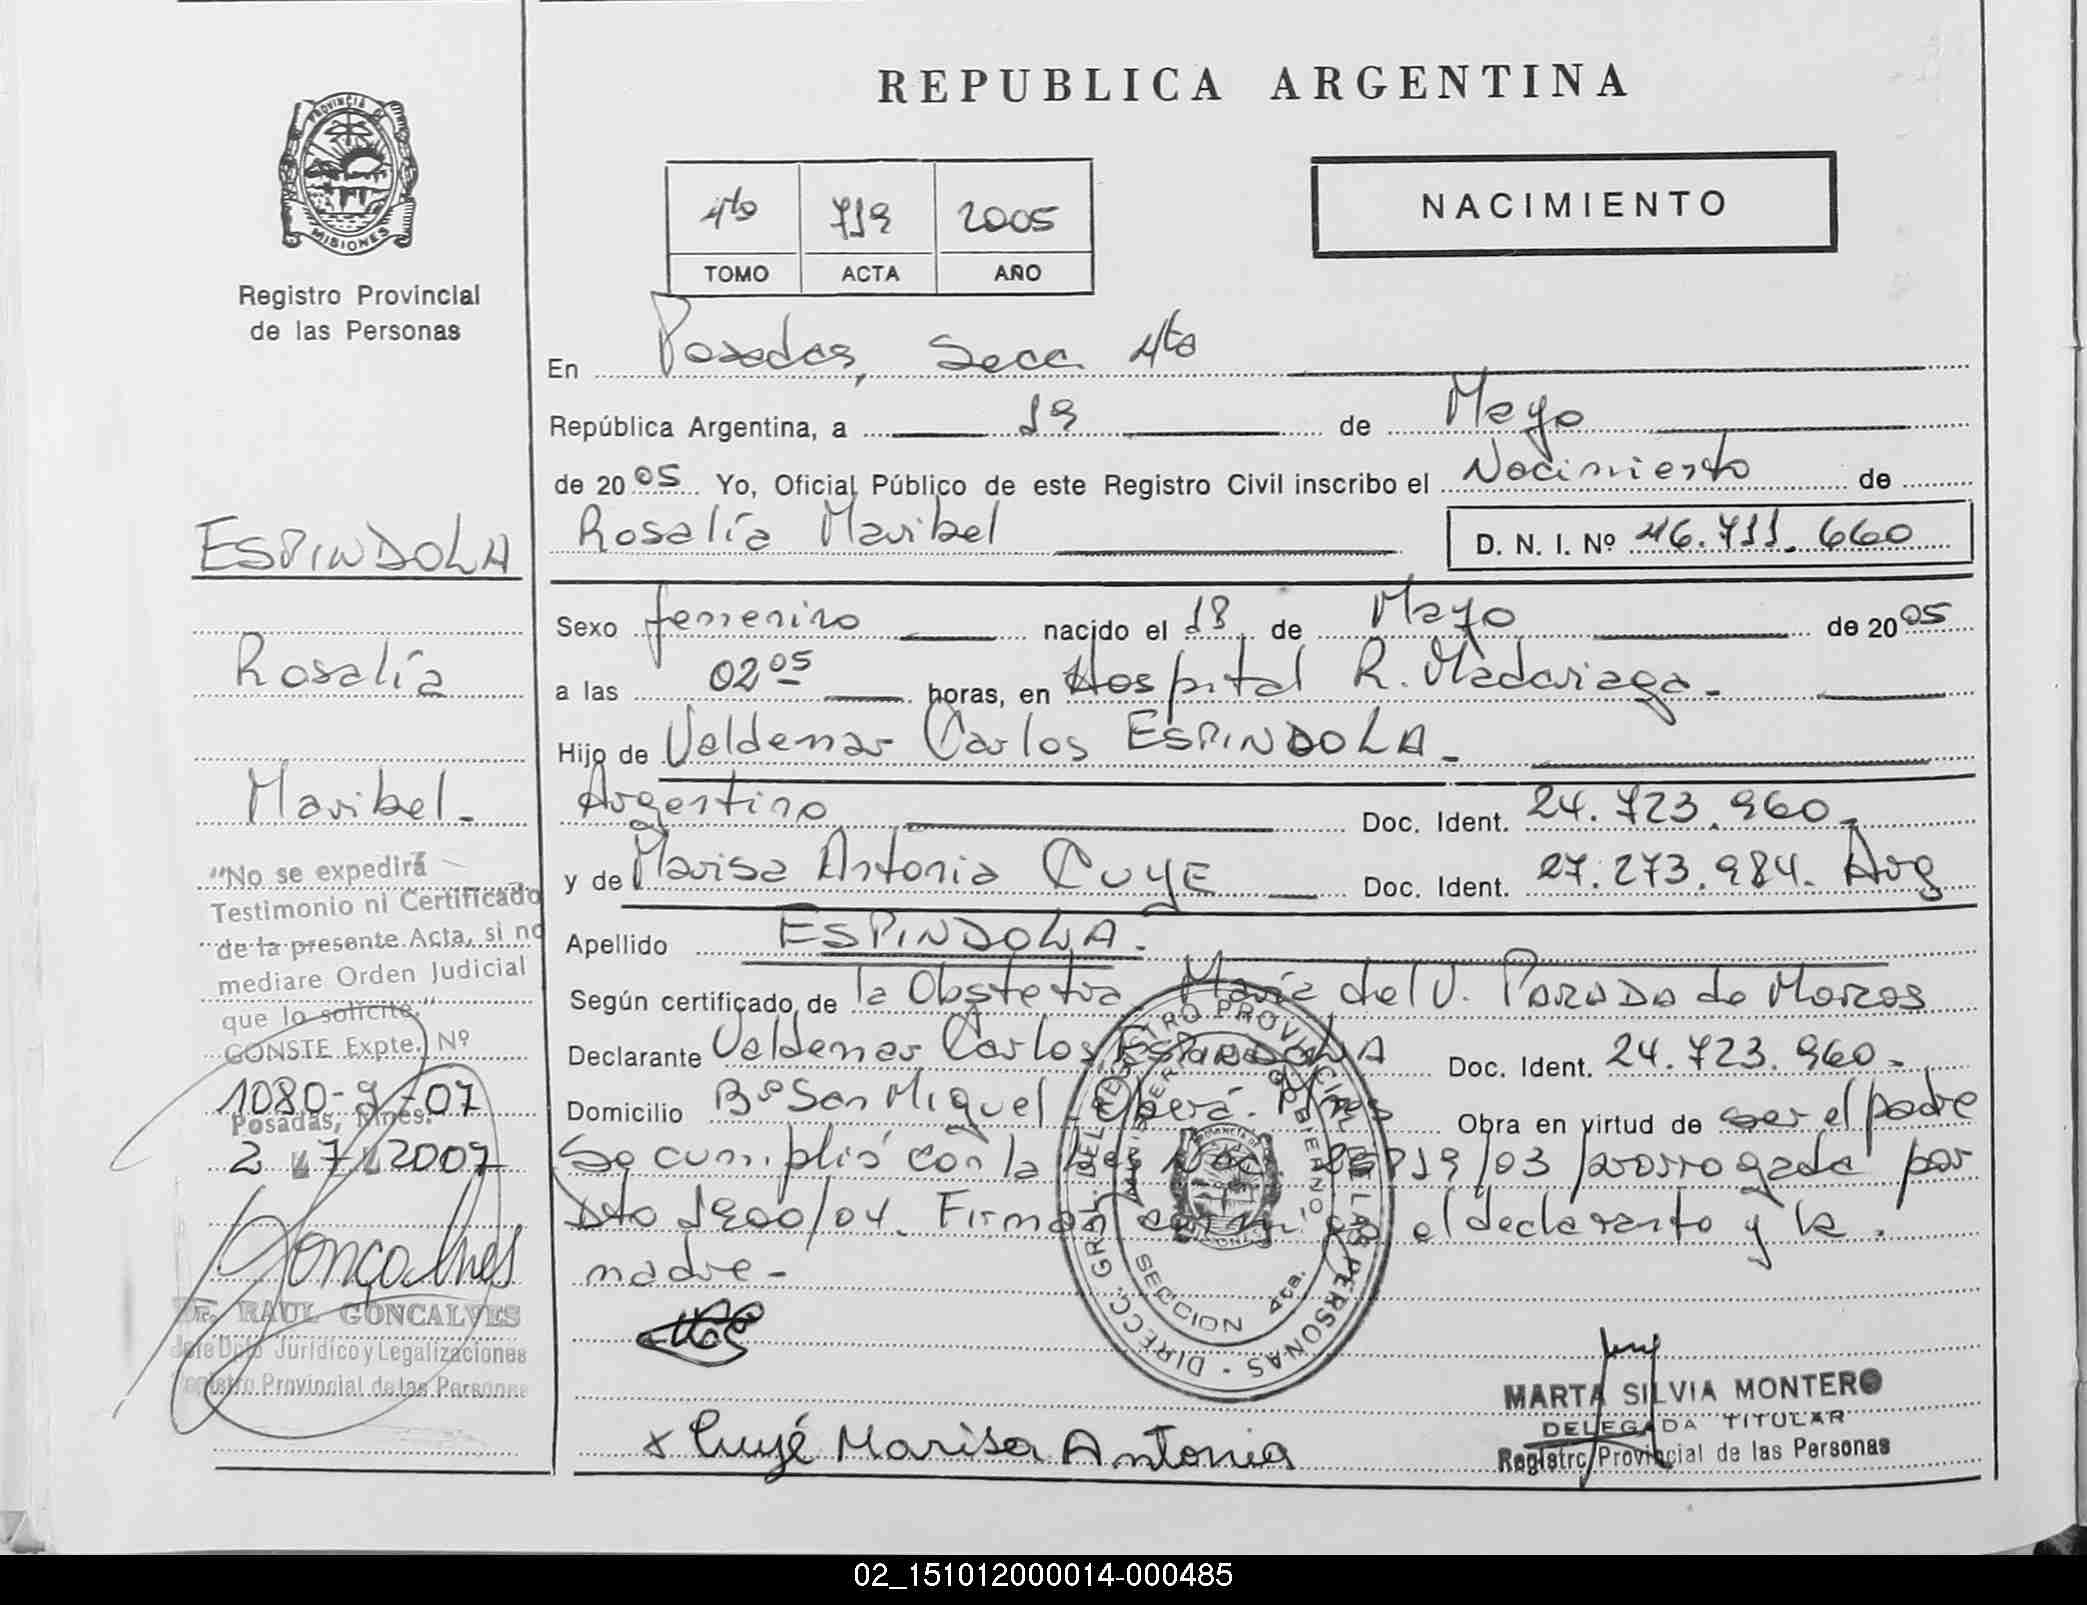 REPUBLICA ARGENTINA
PROVINCIA DE
MISIONES
Registro Provincial
de las Personas
4to 719 2005
TOMO ACTA AÑO
NACIMIENTO
En Posadas, Secc 4to
República Argentina, a 19 de Mayo
de 2005 Yo, Oficial Público de este Registro Civil inscribo el Nacimiento de
Rosalía Maribel D. N. I. Nº 46.711.660
Sexo femenino nacido el 18 de Mayo de 2005
a las 02 05 horas, en Hospital R. Madariaga.-
Hijo de Valdemar Carlos ESPINDOLA.-
Argentino Doc. Ident. 24.723.960.-
y de Marisa Antonia CUYE Doc. Ident. 27.273.984. Arg
Apellido ESPINDOLA.
Según certificado de la Obstetra María del V. PARADA de Marcos
Declarante Valdemar Carlos ESPINDOLA Doc. Ident. 24.723.960.-
Domicilio Bº San Miguel - Oberá. Mnes Obra en virtud de ser el padre
Se cumplió con la Ley Nac. 25819/03 prorrogada por
Dto 1900/04. Firman el declarante y la
madre-
x Cuyé Marisa Antonia
MARTA SILVIA MONTERO
DELEGADA TITULAR
Registro Provincial de las Personas
DIRECC. GRAL. DEL REGISTRO PROVINCIAL DE LAS PERSONAS
SECCION 4ta.
ESPINDOLA
Rosalía
Maribel-
"No se expedirá
Testimonio ni Certificado
de la presente Acta, si no
mediare Orden Judicial
que lo solicite."
CONSTE Expte. Nº
1080-9-07
Posadas, Mnes.
2 7 2007
Gonçalves
Dr. RAUL GONCALVES
Jefe Dpto Jurídico y Legalizaciones
Registro Provincial de las Personas
02_151012000014-000485